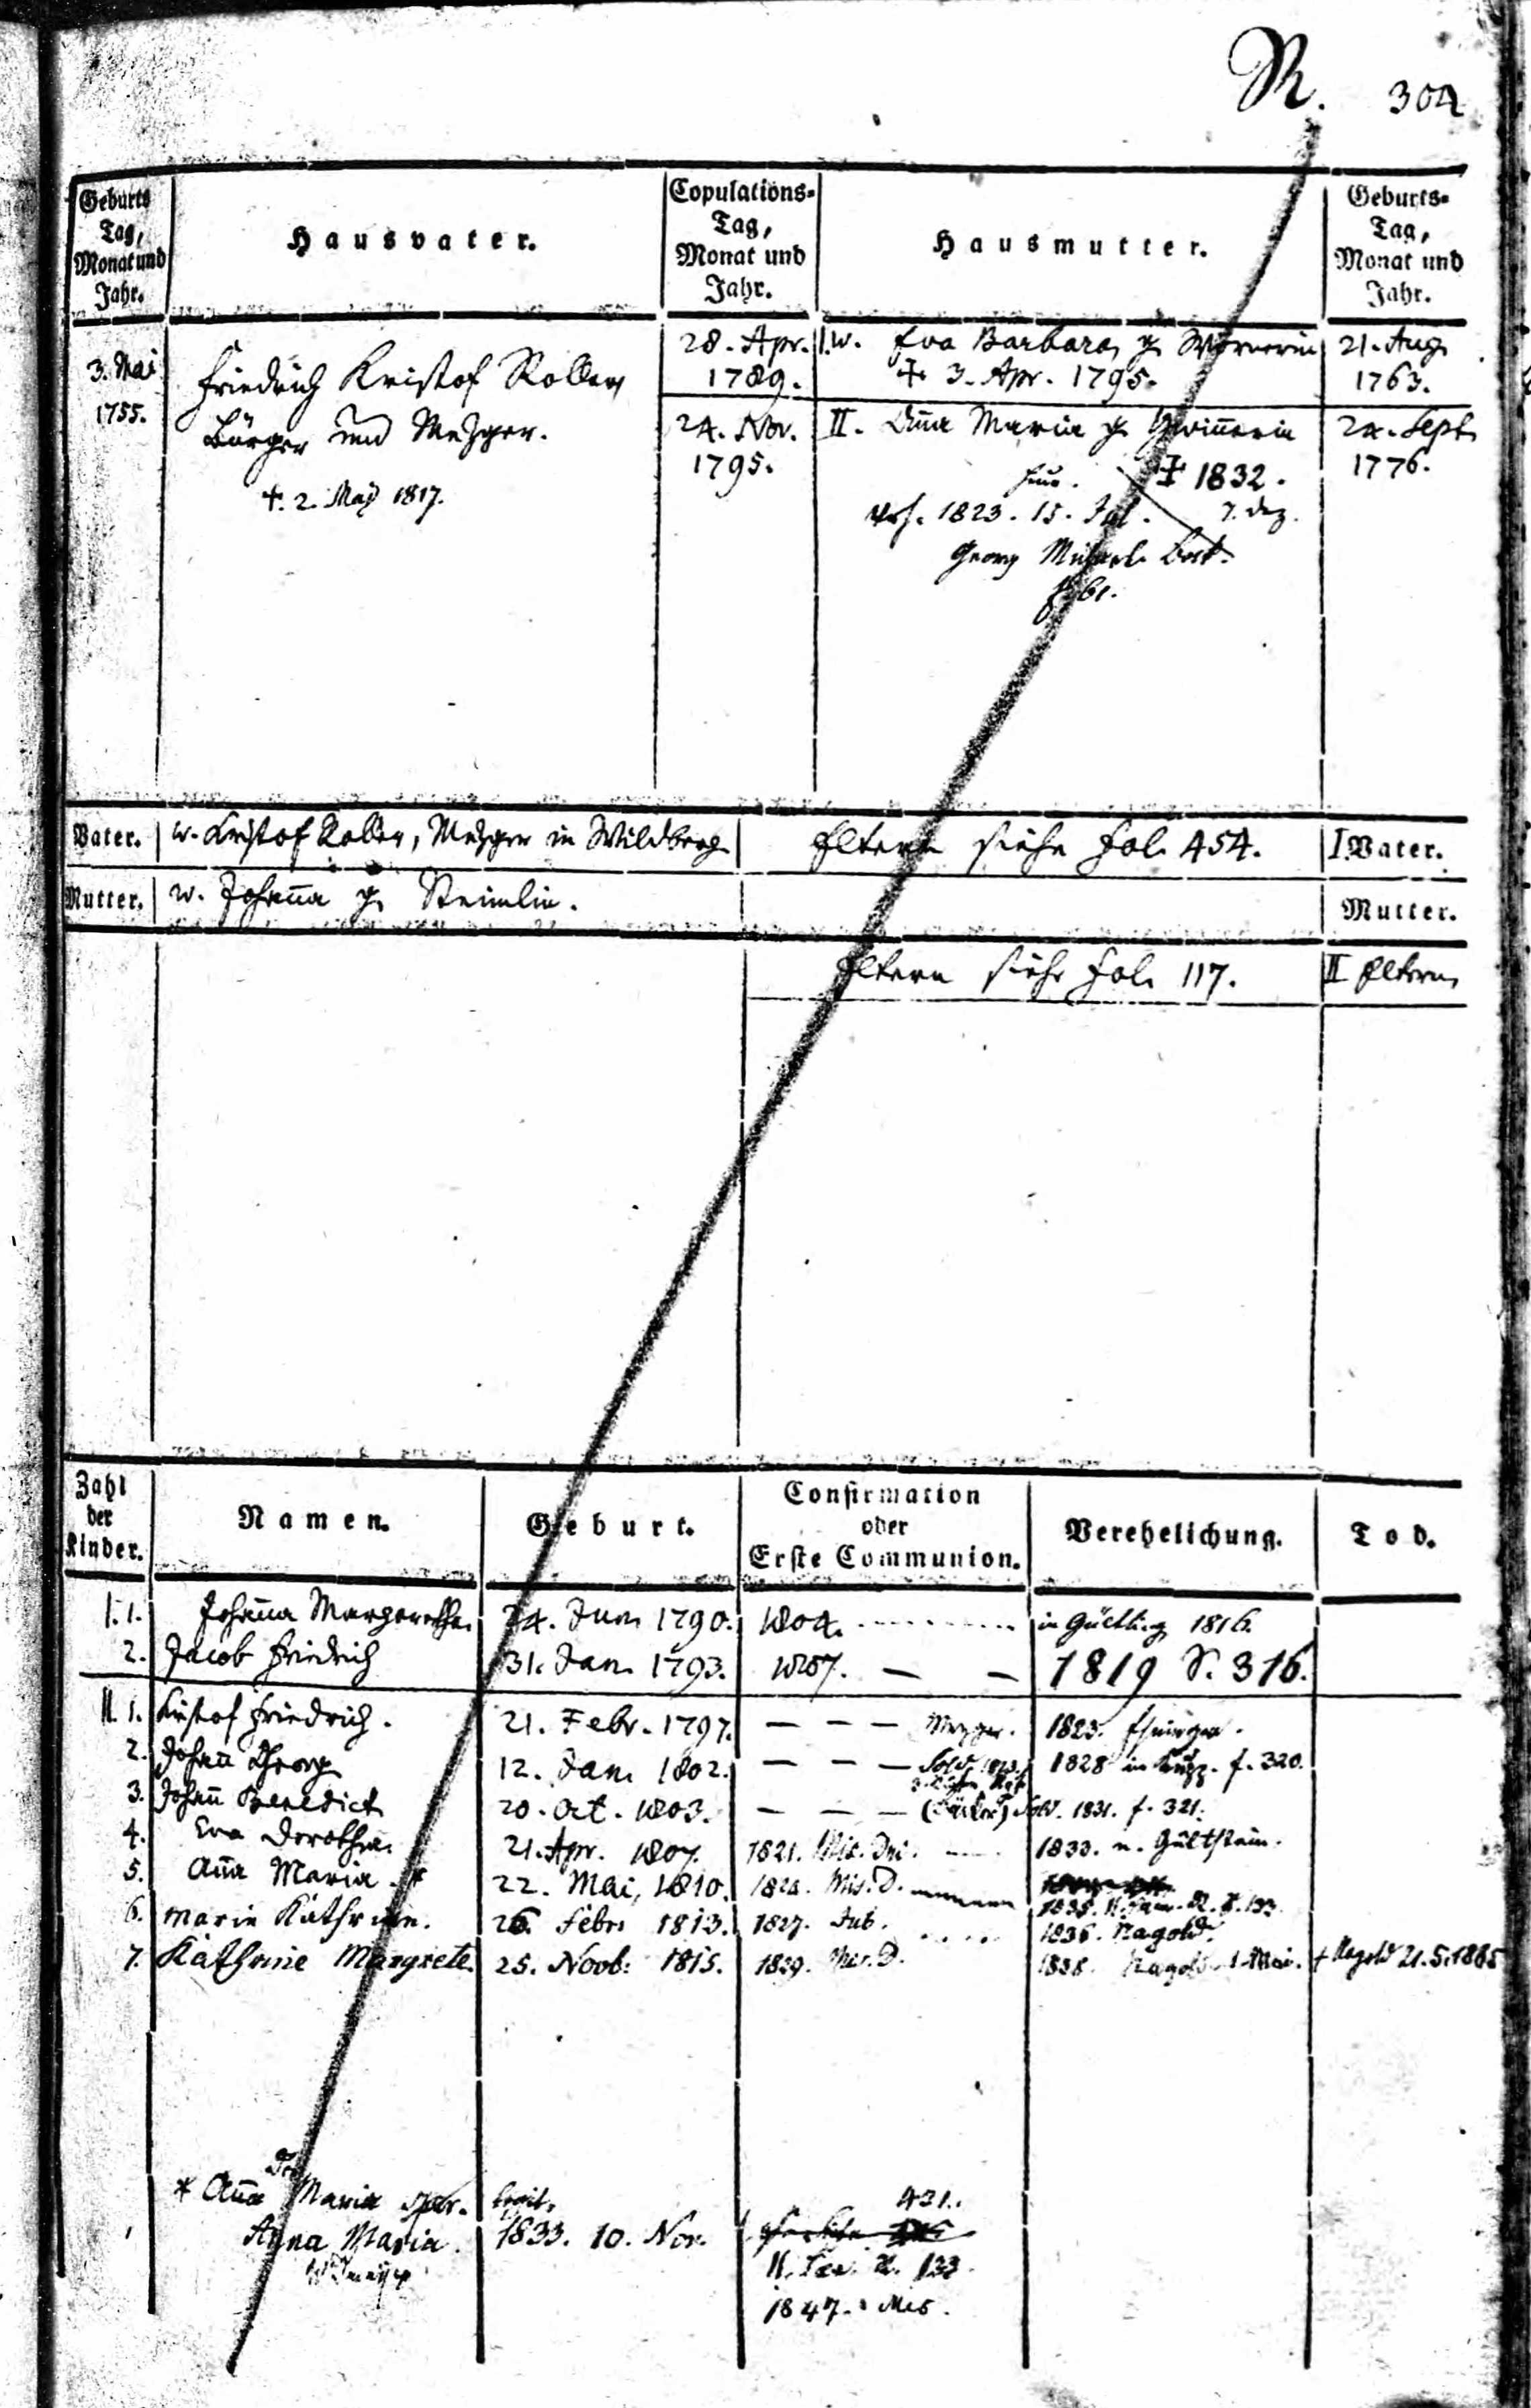 R. 304
Geburts
Tag,
Monat und
Jahr.
Hausvater.
Copulations-
Tag,
Monat und
Jahr.
Hausmutter.
Geburts-
Tag,
Monat und
Jahr.
3. Mai
1755.
Friedrich Kristof Roller
Bürger und Mezger.
+. 2. May 1817.
28. Apr.
1789.
I. w. Eva Barbara, g. Wörnerin
+ 3. Apr. 1795.
21. Aug.
1763.
24. Nov.
1795.
II. Aña Maria g.
+ 1832.
1823. 15. Jul. 7. Dez.
Georg Michael
24. Sept.
1776.
Vater. w. Kristof Roller, Mezger in Wildberg.
Eltern siehe Fol. 454. I. Vater.
Mutter. w. Johaña g.
Mutter.
Eltern siehe Fol. 117. II Eltern
Zahl
der
Kinder.
Namen.
Geburt.
Confirmation
oder
Erste Communion.
Verehelichung.
Tod.
I. 1. Johaña Margaretha. 24. Jun. 1790. 1804. in Gültling. 1816.
2. Jacob Friedrich 31. Jan. 1793. 1807. — — 1819 S. 316.
II. 1. Kristof Friedrich. 21. Febr. 1797. — — — Mezger. 1823.
2. Johañ Georg 12. Jan. 1802. — — — Sold. 1823. 1828 in f. 320.
3. Johañ Benedict 20. Oct. 1803. — — — 1831. f. 321.
4. Eva Dorothea. 21. Apr. 1807. 1821. 1833. n. Gültstein.
5. Aña Maria. * 22. Mai, 1810. 1824. Mis. D. 1835. N. Fam. R. f. 133.
6. Marie Kathrine. 26. Febr. 1813. 1827. Jub. 1836. Nagold.
7. Kathrine Margrete. 25. Novb. 1815. 1829. Mis. D. 1838. Nagold. 1. Mai. + Nagold 21.5.1865
* Aña Maria
Anna Maria. 1833. 10. Nov.
421.
133.
1847. Mis.